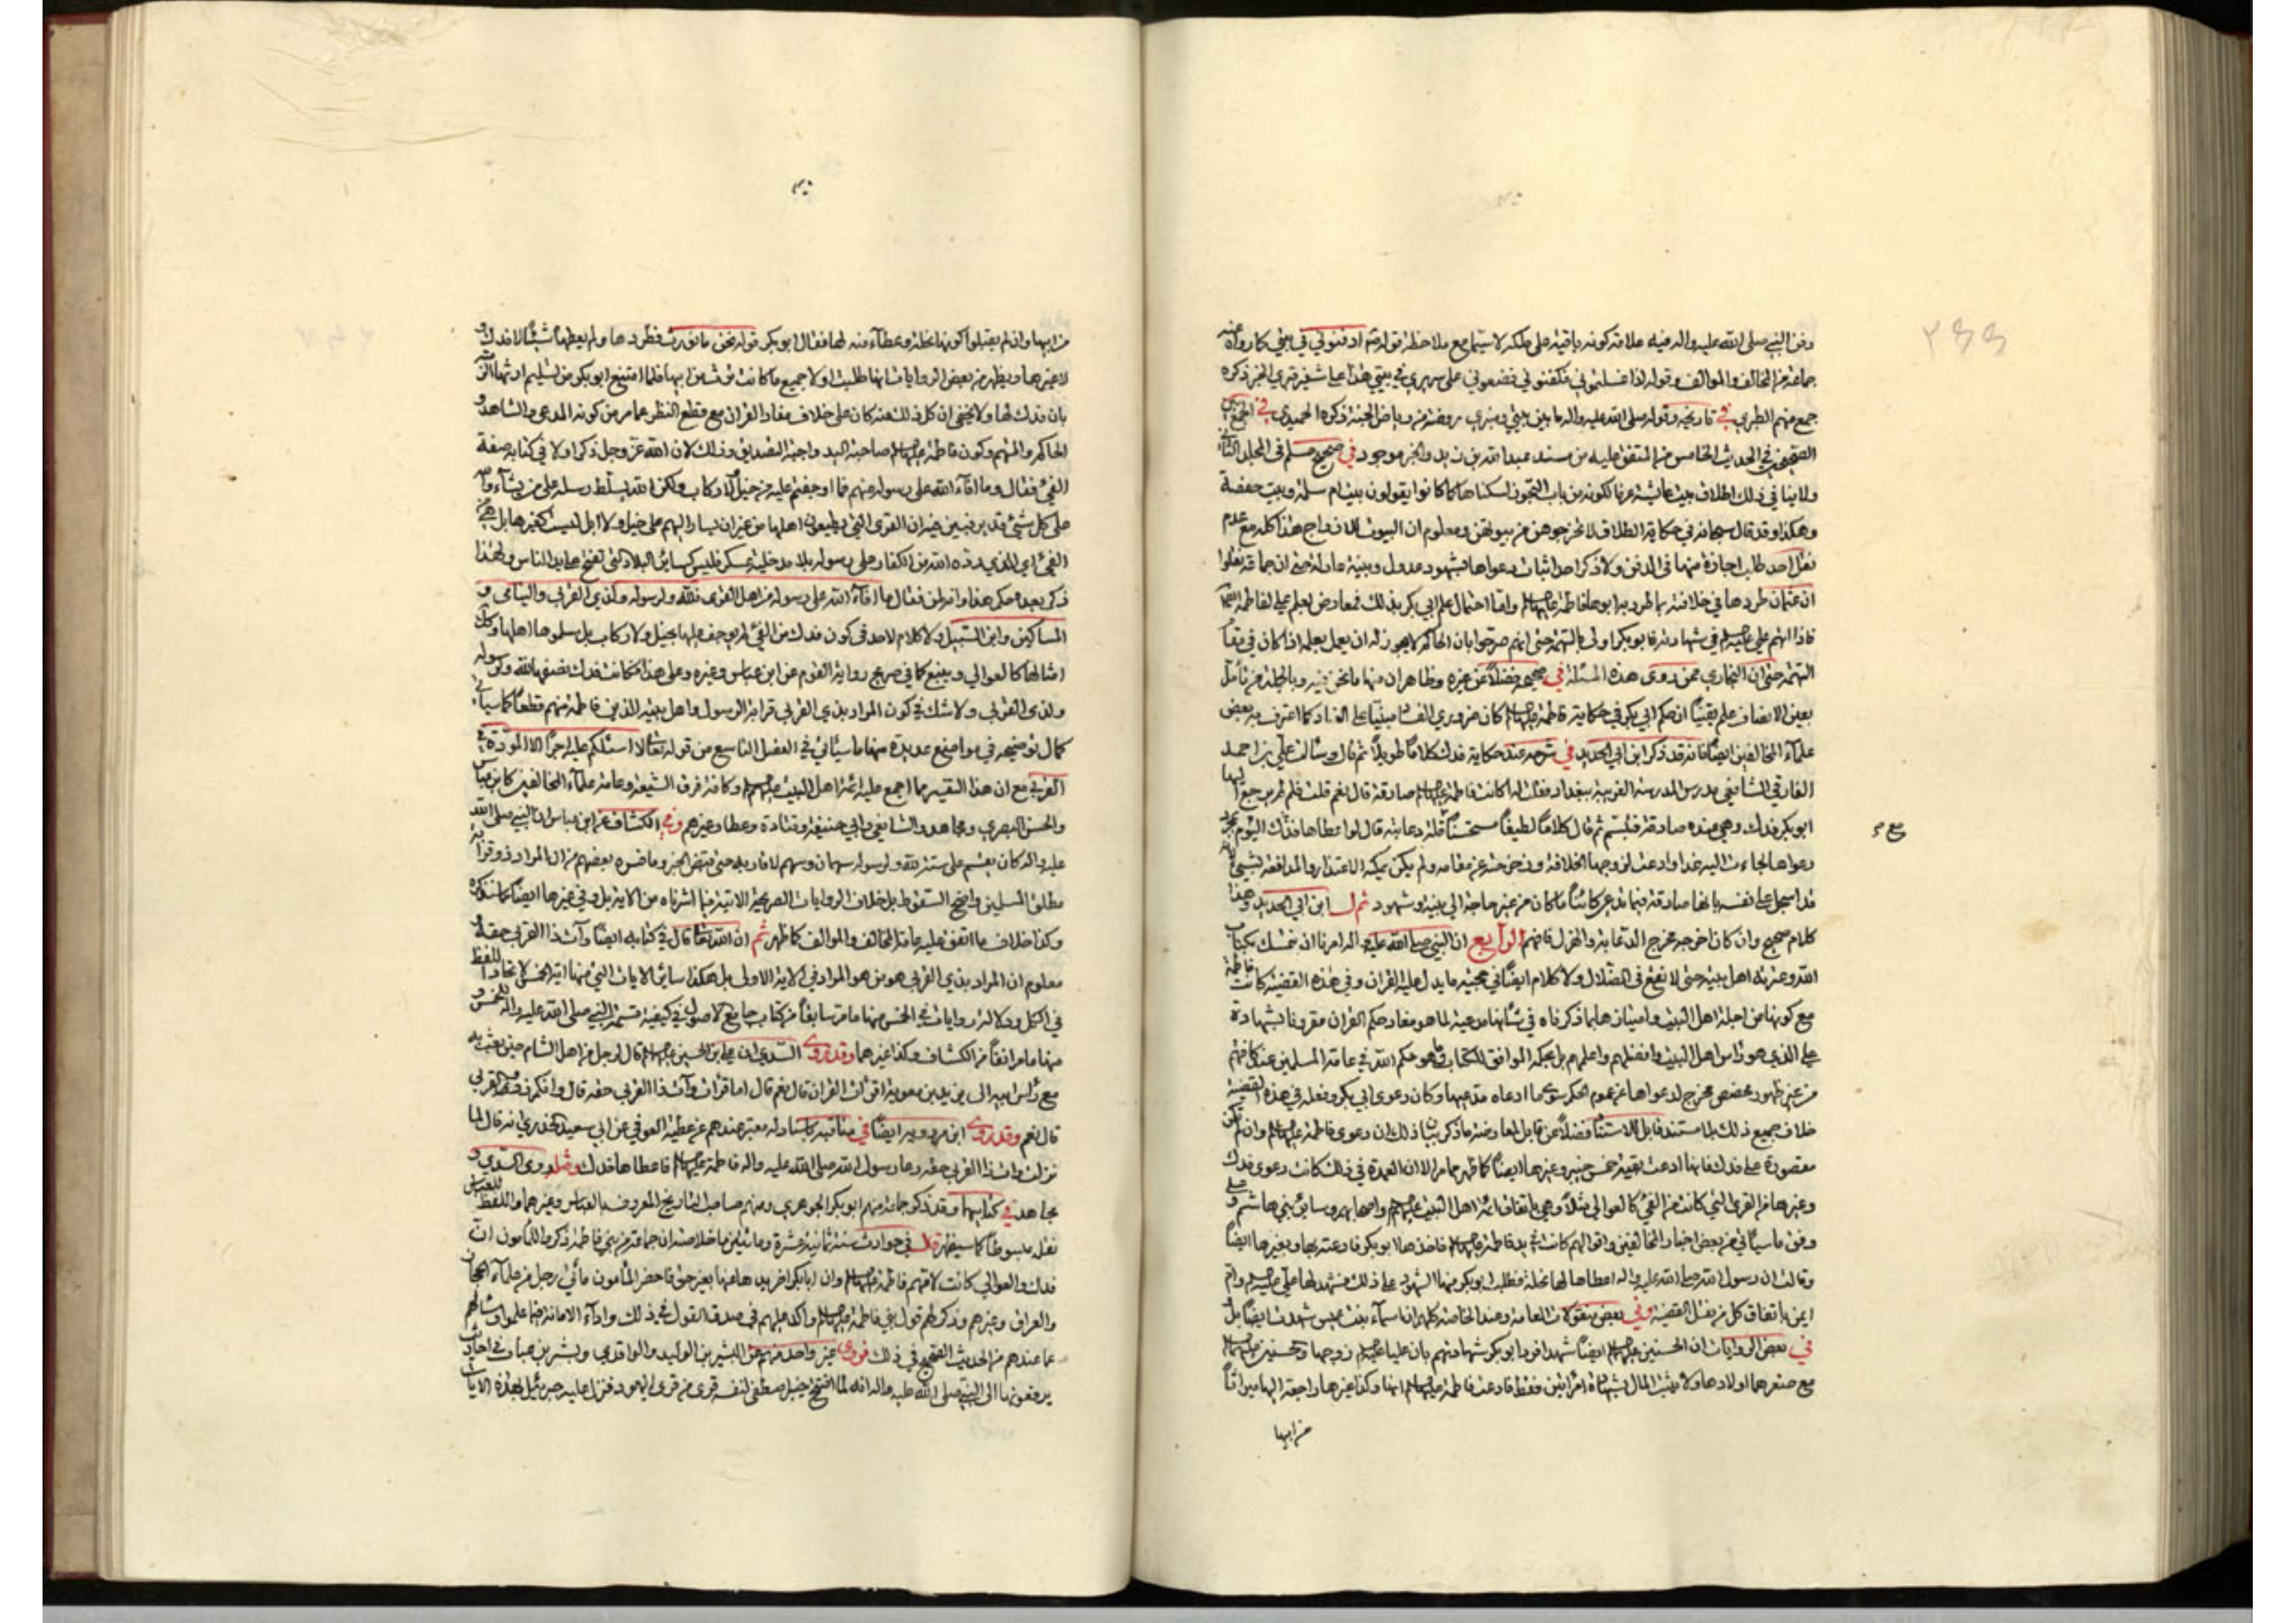 دفن النبي صلى الله عليه واله فيه علامة كونه باقية على ملكه لاسيما مع ملاحظة قوله ادفنوني في بيتي كما رواه عنه
جماعة من المخالف والموالف وقوله اذا غسلتموني فكفنتموني فضعوني على سريري في بيتي هذا على شفير قبري الخبر ذكره
جمع منهم الطبري في تاريخه وقوله صلى الله عليه واله ما بين بيتي ومنبري روضة من رياض الجنة ذكره الحميدي في الجمع بين
الصحيحين في الحديث الخامس من المتفق عليه من مسند عبد الله بن زيد والخبر موجود في صحيح مسلم في المجلد الثاني
ولا ينافي ذلك اطلاق بيت عايشة عرفا لكونه من باب التجوز لسكناها كما كانوا يقولون بيت ام سلمة وبيت حفصة
وهكذا وقد قال سبحانه في حكاية الطلاق لا تخرجوهن من بيوتهن ومعلوم ان البيوت للازواج هذا كله مع عدم
نقل احد طلب اجازة منهما في الدفن ولا ذكر احد اثبات دعواها بشهود عدول وبينة عادلة حتى ان جماعة نقلوا
ان عثمان طردها في خلافته بما طرد به ابوها فاطمة عليها السلام واما احتمال علم ابي بكر بذلك فمعارض بعلم علي لفاطمة
فاذا اتهم علي عليه السلام في شهادته فابو بكر اولى بالتهمة حتى انهم صرحوا بان الحاكم لا يجوز له ان يعمل بعلمه اذا كان في مقام
التهمة حتى ان البخاري ممن روى هذه المسئلة في صحيحه فضلا عن غيره وظاهر ان منها ما نحن فيه وبالجملة من تأمل
بعين الانصاف علم يقينا ان حكم ابي بكر في حكاية فاطمة عليها السلام كان ضروري الفساد مبنيا على العناد كما اعترف به بعض
علماء المخالفين ايضا فانه قد ذكر ابن ابي الحديد في شرحه عند حكاية فدك كلاما طويلا ثم قال وسالت علي بن احمد
الفارقي الشافعي مدرس المدرسة الغربية ببغداد فقلت له اكانت فاطمة عليها السلام صادقة قال نعم قلت فلم لم يدفع اليها
ابو بكر فدك وهي عنده صادقة فتبسم ثم قال كلاما لطيفا مستحسنا قلة دعابته قال لو اعطاها فدك اليوم بمجرد
مع م
دعواها لجاءت اليه غدا وادعت لزوجها الخلافة وزحزحته عن مقامه ولم يكن يمكنه الاعتذار والمدافعة بشيء لانه
قد اسجل على نفسه بانها صادقة فيما تدعي كائنا ما كان من غير حاجة الى بينة وشهود ثم قال ابن ابي الحديد وهذا
كلام صحيح وان كان اخرجه مخرج الدعابة والهزل فافهم الرابع ان النبي صلى الله عليه واله امرنا ان نتمسك بكتاب
الله وعترته اهل بيته حتى لا نقع في الضلال ولا كلام ايضا في حجية ما يدل عليه القران وفي هذه القضية كانت فاطمة
مع كونها من اجلة اهل البيت وامتيازها بما ذكرناه في شأنها مدعية لما هو مفاد حكم القران مقرونا بشهادة
علي الذي هو راس اهل البيت وافضلهم واعلمهم بل بحكمه الموافق للكتاب في ما هو حكم الله في عامة المسلمين عند كافتهم
من غير ظهور مخصص مخرج لدعواها عن عموم الحكم سوى ما ادعاه مدعيها وكان دعوى ابي بكر وفعله في هذه القضية
خلاف جميع ذلك بلا مستند قابل للاستثناء فضلا عن قابل المعارضة ما ذكر بيان ذلك ان دعوى فاطمة عليها السلام وان لم تكن
مقصورة على فدك فانها ادعت بقية خمس خيبر وغيرها ايضا كما ظهر مما مر الا ان العمدة في ذلك كانت دعوى فدك
وغيرها من القرى التي كانت من الفيء كالعوالي مثلا وهي باتفاق ائمة اهل البيت عليهم السلام واصحابهم وسائر بني هاشم على
وفق ما سيأتي من بعض اخبار المخالفين واقوالهم كانت في يد فاطمة عليها السلام فاخذها ابو بكر فادعته بها وبغيرها ايضا
وقالت ان رسول الله صلى الله عليه واله اعطاها لها نحلة فطلب ابو بكر منها الشهود على ذلك فشهد لها علي عليه السلام وام
ايمن باتفاق كل من نقل القضية وفي بعض منقولات العامة وعند الخاصة كلهم ان اسماء بنت عميس شهدت ايضا بل
في بعض الروايات ان الحسنين عليهما السلام ايضا شهدا فرد ابو بكر شهادتهم بان عليا عليه السلام زوجها والحسنين عليهما السلام
مع صغرهما اولادها ولا يثبت المال بشهادة امرأتين فقط فادعت فاطمة عليها السلام انها وكذا غيرها راجعة اليها ميراثا
من ابيها
من ابيها وان لم يقبلوا كونها نحلة وعطاء منه لها فقال ابو بكر قوله نحن ما نورث فطردها ولم يعطها شيئا لا فدك و
لا غيرها ويظهر من بعض الروايات انها طلبت اولا جميع ما كانت ترث من ابيها فلما امتنع ابو بكر من تسليم ارثها
بان فدك لها ولا يخفى ان كل ذلك منه كان على خلاف مفاد القران مع قطع النظر عما مر من كونه المدعي والشاهد و
الحاكم والمتهم وكون فاطمة عليها السلام صاحبة اليد واجبة التصديق وذلك لان الله عز وجل ذكر اولا في كتابه صفة
الفيء فقال وما افاء الله على رسوله منهم فما اوجفتم عليه من خيل ولا ركاب ولكن الله يسلط رسله على من يشاء والله
على كل شيء قدير فبين فيه ان القرى التي يطيعون اهلها من غير ان يسار اليهم على خيل ولا ابل ليست كغيرها بل هي من
الفيء اي الذي رده الله من الكفار على رسوله بلا مدخلية عسكر فليس كسائر البلاد التي تفتح بمحاربة الناس ولهذا
ذكر بعده حكم هذا وانه لمن فقال ما افاء الله على رسوله من اهل القرى فلله ولرسوله ولذي القربى واليتامى و
المساكين وابن السبيل ولا كلام لاحد في كون فدك من الفيء لم يوجف عليها بخيل ولا ركاب بل سلموها اهلها وكذلك
امثالها كالعوالي وينبع كما في صريح رواية القوم عن ابن عباس وغيره وعلى هذا فكانت فدك بنص الله لله ولرسوله
ولذي القربى ولا شك في كون المراد بذي القربى قرابة الرسول واهل بيته الذين فاطمة منهم قطعا كما سيأتي
كمال توضيحه في مواضع عديدة منها ما سيأتي في الفصل التاسع من قوله تعالى لا اسئلكم عليه اجرا الا المودة في
القربى مع ان هذا التفسير مما اجمع عليه ائمة اهل البيت عليهم السلام وكافة فرق الشيعة وعامة علماء المخالفين كابن عباس
والحسن البصري ومجاهد والشافعي وابي حنيفة وقتادة وعطا وغيرهم وفي الكشاف عن ابن عباس ان النبي صلى الله
عليه واله كان يقسم على ستة لله ولرسوله سهمان وسهم لاقاربه حتى قبض الخبر وما فسره بعضهم من ان المراد ذو قرابة
مطلق المسلمين واضح السقوط بل خلاف الروايات الصريحة الاتية فيما اشرناه من الاية بل وفي غيرها ايضا كما سنذكره
وكذا خلاف ما اتفق عليه عامة المخالف والموالف كما ظهر ثم ان الله تعالى قال في كتابه ايضا وآت ذا القربى حقه و
معلوم ان المراد بذي القربى هو من هو المراد في الاية الاولى بل هكذا سائر الايات التي منها اية الخمس لاتحاد اللفظ
في الكل ودلالة روايات في الخمس منها ما مر سابقا من كتاب جامع الاصول في كيفية قسمة النبي صلى الله عليه واله للخمس و
منها ما مر انفا من الكشاف وكذا غيرهما وقد روى السدي ان علي بن الحسين عليه السلام قال لرجل من اهل الشام حين بعث به
مع رأس ابيه الى يزيد بن معوية اقرأت القران قال نعم قال اما قرأت وآت ذا القربى حقه قال وانكم ذو القربى
قال نعم وقد روى ابن مردويه ايضا في مناقبه باسناد له معتبر عندهم عن عطية العوفي عن ابي سعيد الخدري انه قال لما
نزلت وآت ذا القربى حقه دعا رسول الله صلى الله عليه واله فاطمة عليها السلام فاعطاها فدك ومثله روى السدي و
مجاهد في كتابيهما وقد ذكر جماعة منهم ابو بكر الجوهري ومنهم صاحب التاريخ المعروف بالعباسي وغيرهما واللفظ للعباسي
نقله مبسوطا كما سيظهر قال في حوادث سنة ثمانية عشرة ومائتين ما خلاصته ان جماعة من بني فاطمة ذكروا للمأمون ان
فدك والعوالي كانت لامهم فاطمة عليها السلام وان ابا بكر اخرج يدها عنها بغير حق فاحضر المأمون مائتي رجل من علماء الحجاز
والعراق وغيرهم وذكر لهم قول بني فاطمة عليها السلام واكد عليهم في صدق القول في ذلك واداء الامانة فيما علموا وسألهم
عما عندهم من الحديث الصحيح في ذلك فروى غير واحد منهم عن البشير بن الوليد والواقدي وبشر بن عتاب في احاديث
يرفعونها الى النبي صلى الله عليه واله انه لما افتتح خيبر اصطفى لنفسه قرى من قرى اليهود فنزل عليه جبرئيل بهذه الايات